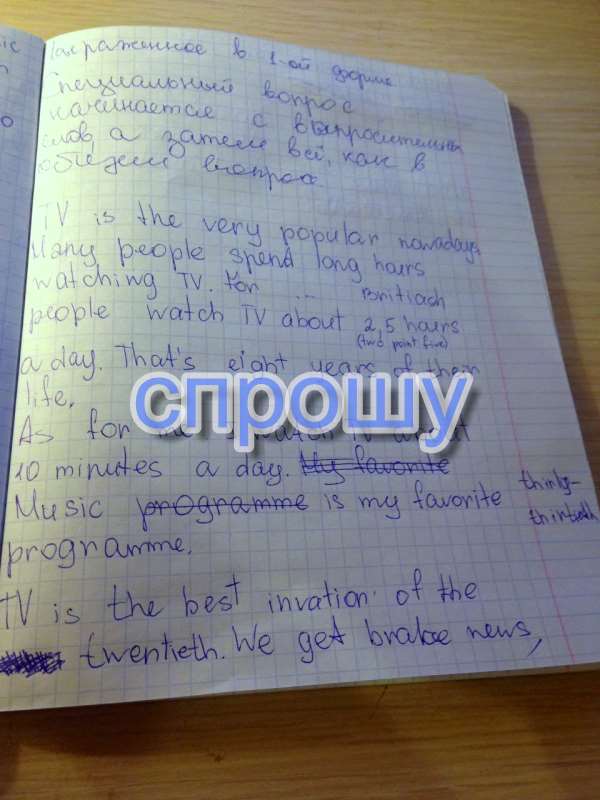 выраженное в 1-ой форме
Специальный вопрос
начинается с
слов, а затем всё, как в
общем вопросе.
TV is the very popular nowadays
Many people spend long hours
watching TV. For ... Britiach
people watch TV about 2,5 hours
(two point five)
a day. That's eight years of their
life.
спрошу
As for me I watch TV about
10 minutes a day. My favorite
Music programme is my favorite
programme.
thirty-
thirtieth
TV is the best invation of the
twentieth. We get brake news,